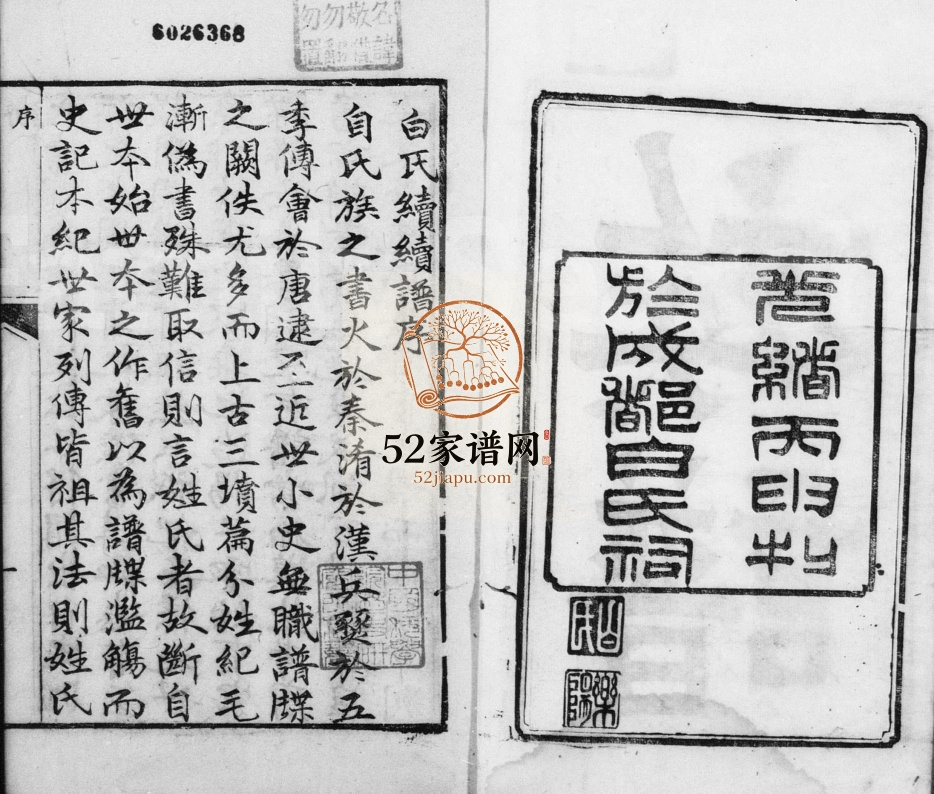 6026368
光緒丙申刊
於成都白氏祠
白氏續續譜序
自氏族之書火於秦淆於漢兵燹於五
季傅會於唐逮至近世小史無職譜牒
之闕佚尤多而上古三墳篇分姓紀毛
漸偽書殊難取信則言姓氏者故斷自
世本始世本之作舊以為譜牒濫觴而
史記本紀世家列傳皆祖其法則姓氏
序
52家谱网
52jiapu.com